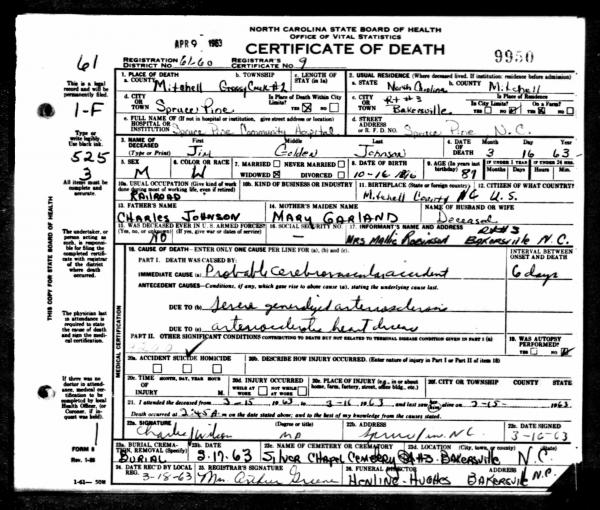 NORTH CAROLINA STATE BOARD OF HEALTH
OFFICE OF VITAL STATISTICS
APR 9 1963
CERTIFICATE OF DEATH
9950
61
REGISTRATION DISTRICT NO. 61-60 REGISTRAR'S CERTIFICATE NO. 9
This is a legal record and will be permanently filed.
1-F
Type or write legibly. Use black ink.
525
3
All items must be complete and accurate.
THIS COPY FOR STATE BOARD OF HEALTH
The undertaker, or person acting as such, is responsible for filing the completed certificate with registrar of the district where death occurred.
The physician last in attendance is required to state the cause of death and sign the medical certification.
If there was no doctor in attendance, medical certification to be completed by local Health Officer, (or Coroner, if inquest was held).
1
1. PLACE OF DEATH
a. COUNTY Mitchell
b. TOWNSHIP Grassy Creek #2
c. LENGTH OF STAY (in 1a)
2. USUAL RESIDENCE (Where deceased lived. If institution: residence before admission)
a. STATE North Carolina
b. COUNTY Mitchell
d. CITY OR TOWN Spruce Pine
Is Place of Death Within City Limits? YES ☒ NO ☐
c. CITY OR TOWN Rt #3 Bakersville
In City Limits? On a Farm?
e. FULL NAME OF HOSPITAL OR INSTITUTION (If not in hospital or institution, give street address or location) Spruce Pine Community Hospital
d. STREET ADDRESS OR R. F. D. NO. Spruce Pine N.C.
3. NAME OF DECEASED (Type or Print) First Jim Middle Golden Last Johnson
4. DATE OF DEATH Month 3 Day 16 Year 63
5. SEX M
6. COLOR OR RACE W
7. MARRIED ☐ NEVER MARRIED ☐ WIDOWED ☒ DIVORCED ☐
8. DATE OF BIRTH 10-16
9. AGE (in years last birthday) IF UNDER 1 YEAR Months Days IF UNDER 24 HRS. Hours Min.
10a. USUAL OCCUPATION (Give kind of work done during most of working life, even if retired) RAILROAD
10b. KIND OF BUSINESS OR INDUSTRY
11. BIRTHPLACE (State or foreign country) Mitchell County NC
12. CITIZEN OF WHAT COUNTRY? U.S.
13. FATHER'S NAME CHARLES JOHNSON
14. MOTHER'S MAIDEN NAME MARY GARLAND
NAME OF HUSBAND OR WIFE Deceased
15. WAS DECEASED EVER IN U. S. ARMED FORCES? (Yes, no, or unknown) (If yes, give war or dates of service) NO
16. SOCIAL SECURITY NO.
17. INFORMANT'S NAME AND ADDRESS Mrs Mollie Robinson Rt #3 Bakersville N.C.
MEDICAL CERTIFICATION
18. CAUSE OF DEATH—ENTER ONLY ONE CAUSE PER LINE FOR (a), (b), and (c).
INTERVAL BETWEEN ONSET AND DEATH
PART I. DEATH WAS CAUSED BY:
IMMEDIATE CAUSE (a) Probable Cerebrovascular accident 6 days
ANTECEDENT CAUSES—Conditions, if any, which gave rise to above cause (a), stating the underlying cause last.
DUE TO (b) Severe generalized arteriosclerosis
DUE TO (c) arteriosclerotic heart disease
PART II. OTHER SIGNIFICANT CONDITIONS CONTRIBUTING TO DEATH BUT NOT RELATED TO TERMINAL DISEASE CONDITION GIVEN IN PART I (a)
19. WAS AUTOPSY PERFORMED? YES ☐ NO ☒
20a. ACCIDENT SUICIDE HOMICIDE
20b. DESCRIBE HOW INJURY OCCURRED. (Enter nature of injury in Part I or Part II of item 18)
20c. TIME OF INJURY MONTH, DAY, YEAR HOUR M.
20d. INJURY OCCURRED WHILE AT WORK NOT WHILE AT WORK
20e. PLACE OF INJURY (e.g., in or about home, farm, factory, street, office bldg., etc.)
20f. CITY OR TOWN COUNTY STATE
21. I attended the deceased from 3-15 1963 to 3-16 1963 and last saw alive on 3-15- 1963.
Death occurred at 2:45 A. m on the date stated above; and to the best of my knowledge from the causes stated.
22a. SIGNATURE Charles Wilson (Degree or title) MD
22b. ADDRESS Spruce Pine, N.C.
22c. DATE SIGNED 3-16-63
23a. BURIAL, CREMATION, REMOVAL (Specify) BURIAL
23b. DATE 3-17-63
23c. NAME OF CEMETERY OR CREMATORY SILVER CHAPEL CEMETERY
23d. LOCATION (City, town, or county) (State) Rt #3 BAKERSVILLE N.C.
24. DATE REC'D BY LOCAL REG. 3-18-63
25. REGISTRAR'S SIGNATURE Mrs. Arthur Greene
26. FUNERAL DIRECTOR HENLINE-HUGHES BAKERSVILLE N.C.
FORM 8
Rev. 1-56
1-61— 50M